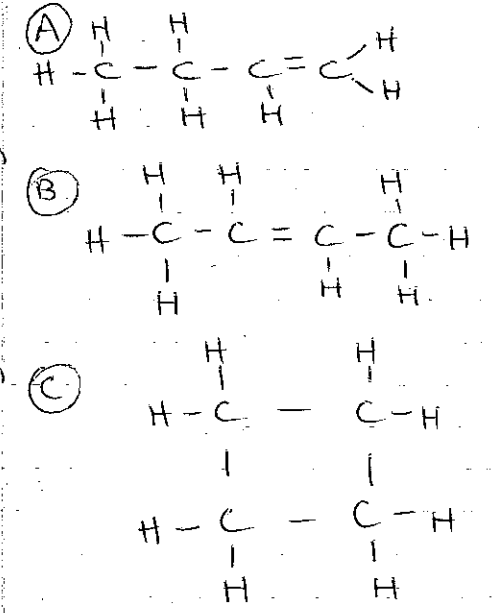 A
H H
H - C - C - C = C H
H H H H
B
H H H
H - C - C = C - C - H
H H H
C
H H
H - C - C - H
H - C - C - H
H H